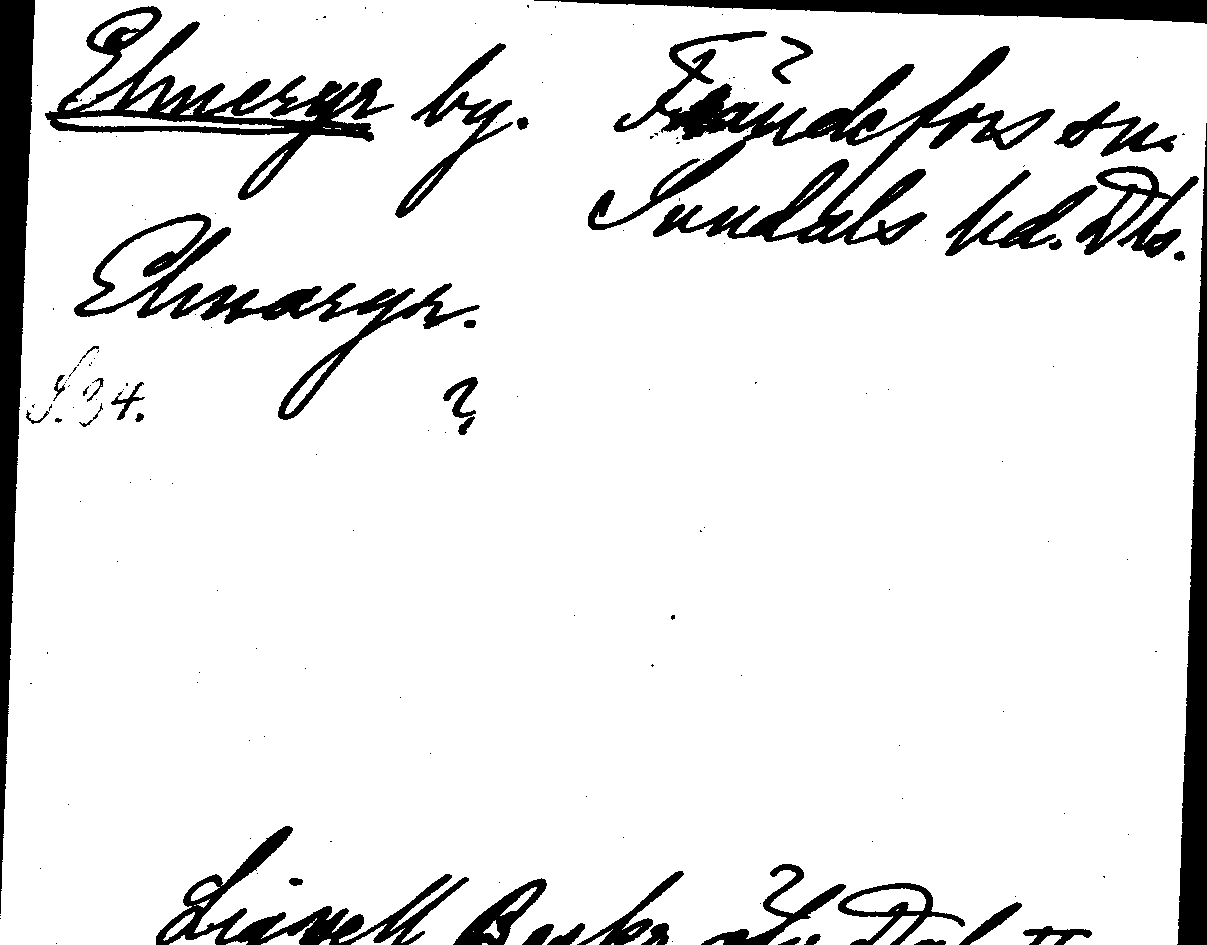 Elmeryr by. Frändefors sn.
Sundals hd. Dls.
Elmaryr.
S. 34. ?
Lignell Beskr. öfv. Dal II